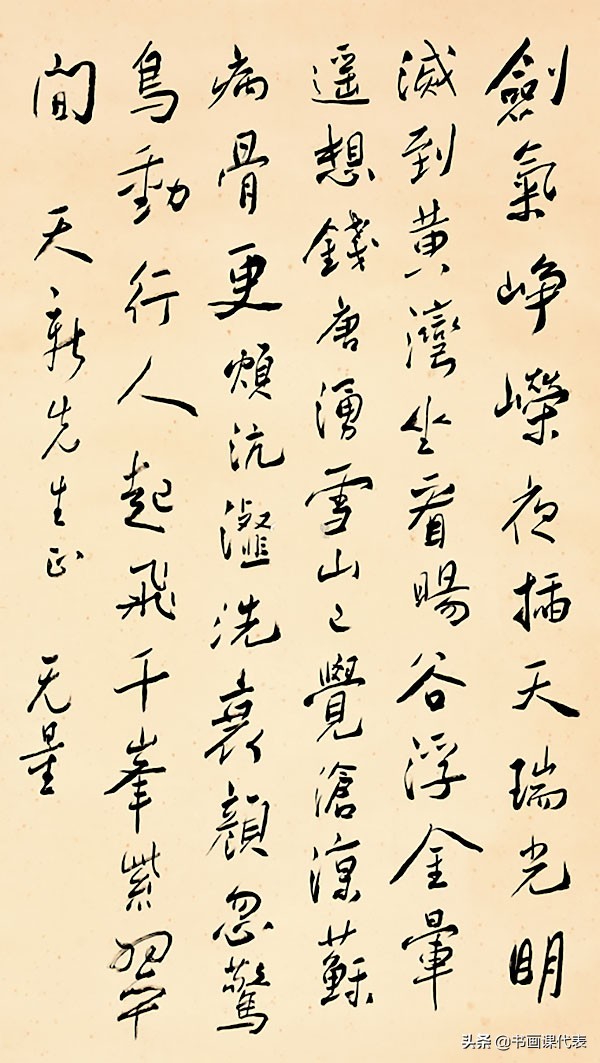 劍氣崢嶸夜插天瑞光明
滅到黄灣坐看暘谷浮金暈
遥想錢唐湧雪山已覺滄涼蘇
病骨更煩沆瀣洗衰顔忽驚
鳥動行人起飛千峯紫翠
間 天新先生正 无量
头条 @书画课代表